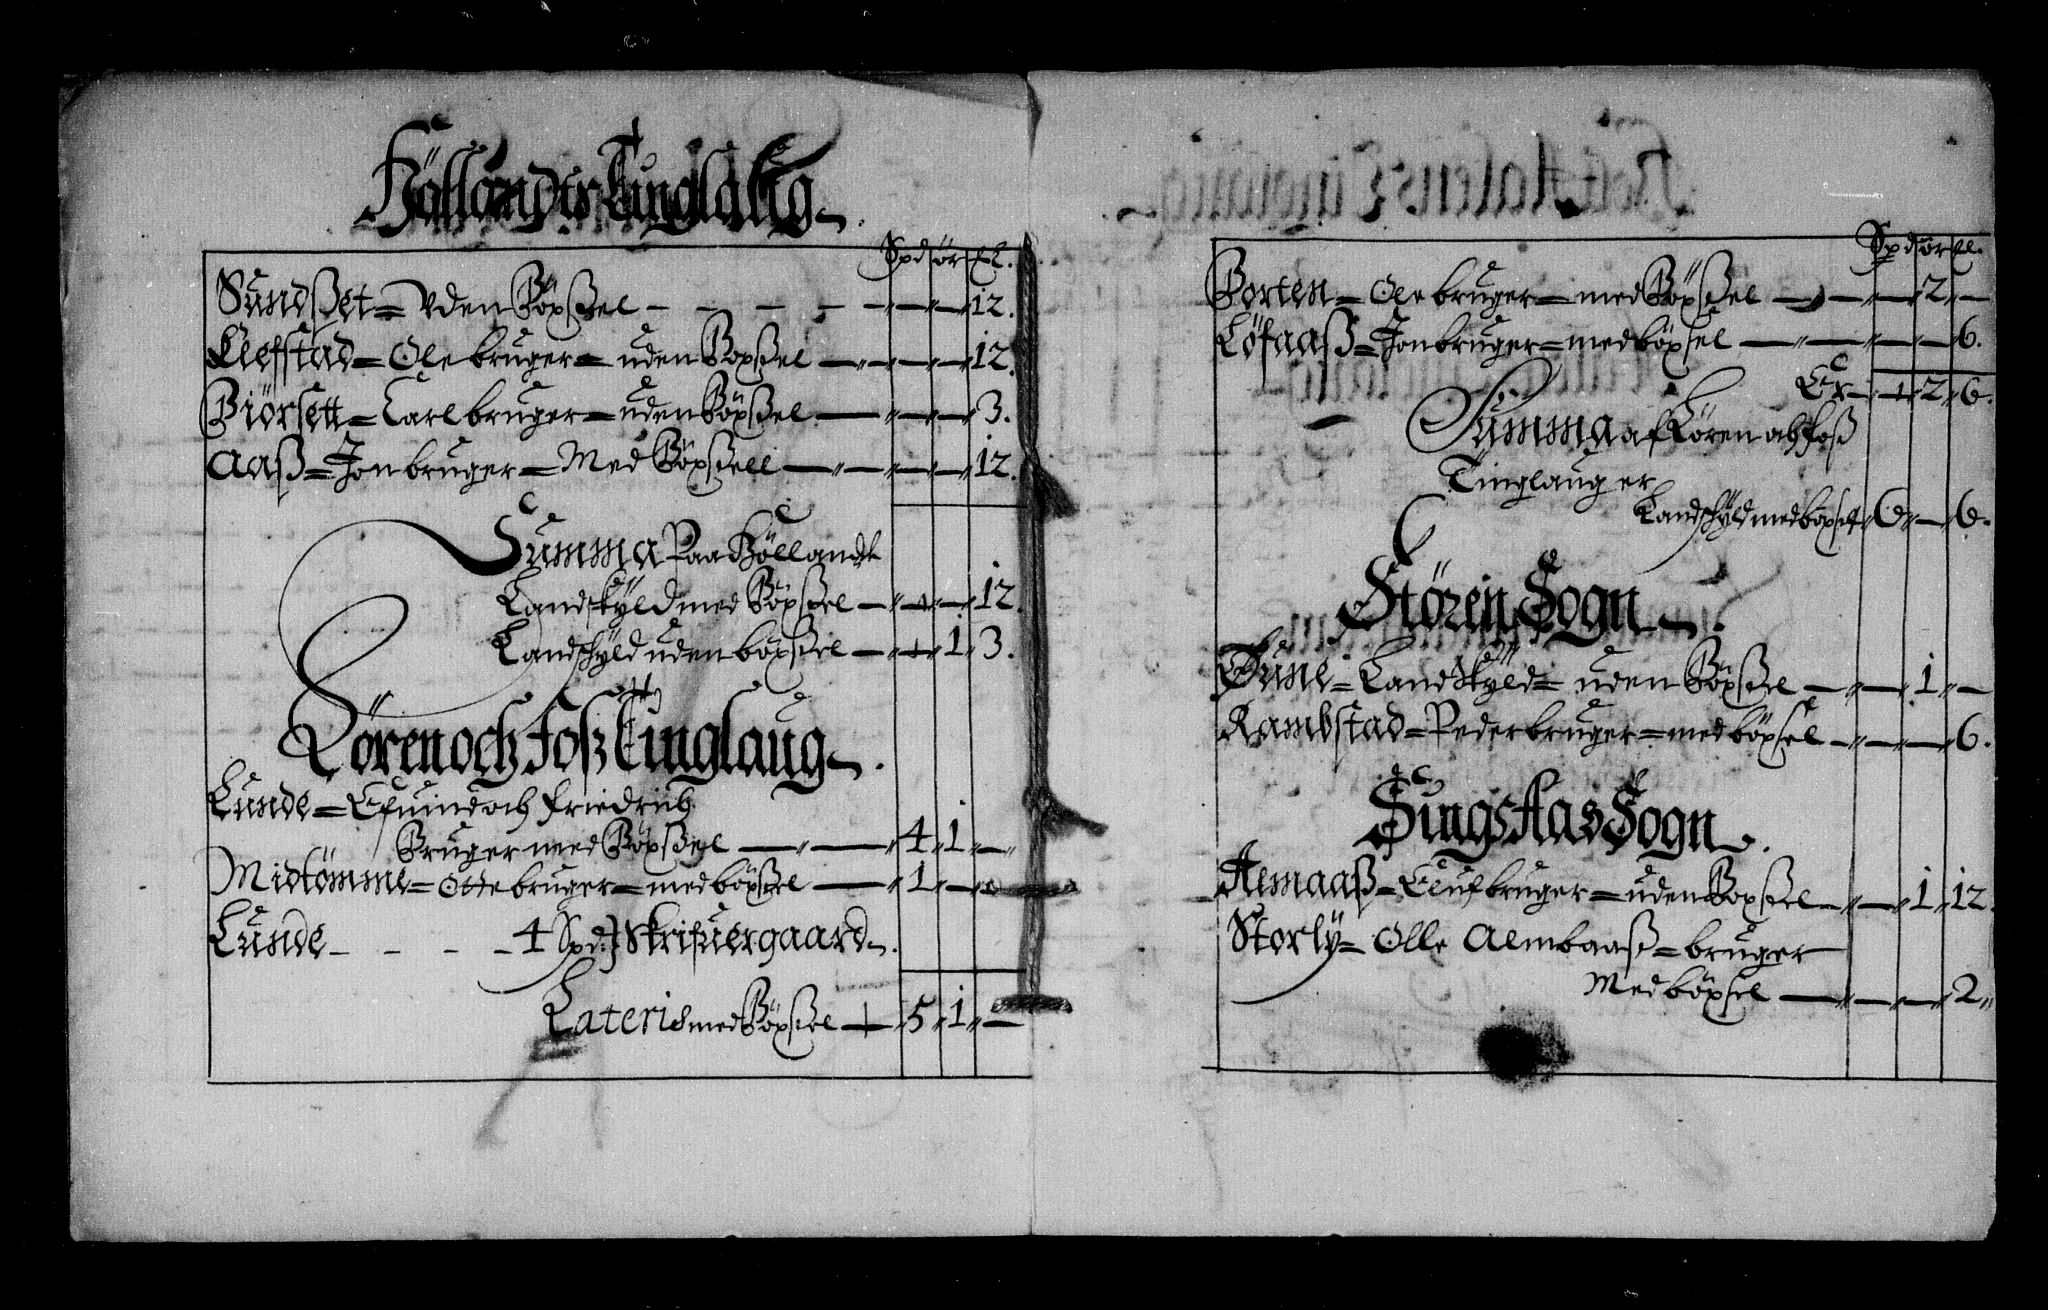 Höllandts Tinglaug
Spd ör El.
Sundßet = Vden Böxßel - - - - „ — „ — „ 12.
Clefstad = Ole bruger = uden Böxßel — „ — „ — „ 12.
Biörsett = Carl bruger = uden Böxßel — „ — „ — „ 3.
Aaß = Jon bruger = Med Böxßell — „ — „ — „ 12.
Summa Paa Höllandt
Landskyld med Böxßel — „ — „ 12.
Landschyld uden böxßel — „ — 1 „ 3.
Rören och Foß Tinglaug
Lunde = Efuind och Friedrich
Bruger med Böxßel — „ — 4 „ 1 „ —
Midtömme = Otte bruger = med böxßel — „ 1 „ — „
Lunde - - - - 4 Spd: Skrifuergaard
Lateris med Böxßel — „ 5 „ 1 „ —
Spd ör El.
Borten = Ole bruger = med Böxßel — „ — „ 2 „ —
Löfaaß = Jon bruger = med böxsel — „ — „ — 6.
— „ — „ 2 „ 6.
Summa af Rören och Foß
Tinglauger
Landschyld med böxsel „ 6 „ — „ 6.
Stören Sogn
Sune = Landskyld = uden Böxßel — „ — „ 1 „ —
Rambstad = Peder bruger = med böxsel — „ — „ — 6.
Singsaas Sogn
Aemaaß = Eluf bruger = uden Böxsel — „ — „ 1 „ 12.
Storly = Olle Almbaaß = bruger
Med böxsel — „ — „ — 2 „